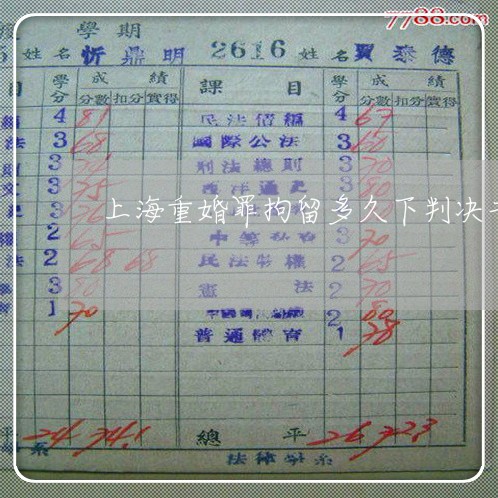 7788.com
學期
5 姓名 忻鼎明 2616 姓名 賈泰德
目 學分 成績 課目 學分 成績
分數 扣分 實得 分數 扣分 實得
4 81 民法債編 4 67
法 3 68 國際公法 3 60
3 刑法總則 3 70
3 75 西洋通史 3 80
上海重婚罪拘留多久下判决
2 65 中等 3 70
法 2 68 68 民法物權 2 65
3 80 憲法 2 70
1 70 2 80
普通體育 1 78
平 24 74.1 總平 26 72.3
系 法律學系